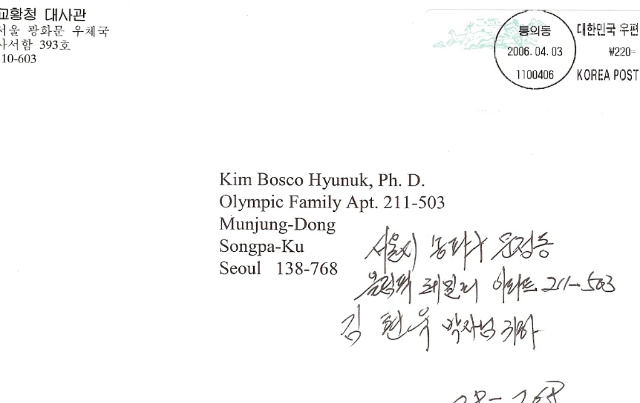 교황청 대사관
서울 광화문 우체국
사서함 393호
110-603
통의동
2006.04.03
1100406
대한민국 우편
₩220=
KOREA POST
Kim Bosco Hyunuk, Ph. D.
Olympic Family Apt. 211-503
Munjung-Dong
Songpa-Ku
Seoul 138-768
서울시 송파구 문정동
올림픽 훼밀리 아파트 211-503
김 현 욱 박사님 귀하